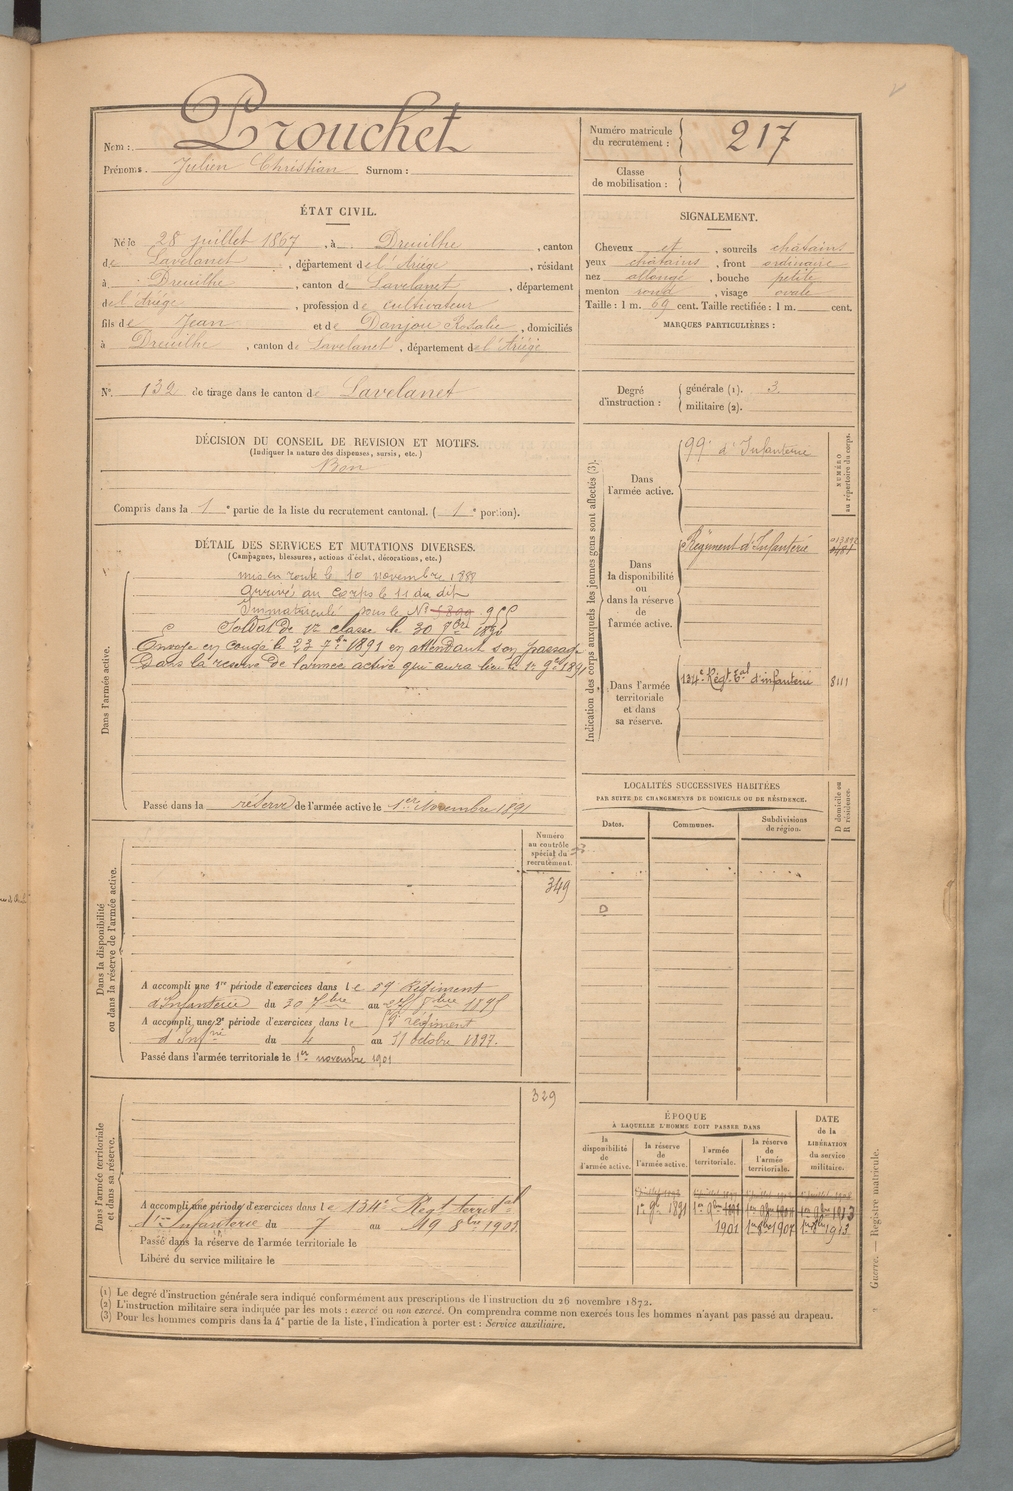 Nom : Prouchet
Prénoms. Julien Christian Surnom :
Numéro matricule du recrutement : 217
Classe de mobilisation :
ÉTAT CIVIL.
Né le 28 juillet 1867, à Dreuilhe, canton
de Lavelanet, département de l'Ariège, résidant
à Dreuilhe, canton de Lavelanet, département
de l'Ariège, profession de cultivateur
fils de Jean et de Danjou Rosalie, domiciliés
à Dreuilhe, canton de Lavelanet, département de l'Ariège
SIGNALEMENT.
Cheveux et, sourcils châtains
yeux châtains, front ordinaire
nez allongé, bouche petite
menton rond, visage ovale
Taille : 1 m. 69 cent. Taille rectifiée : 1 m. cent.
MARQUES PARTICULIÈRES :
N° 132 de tirage dans le canton de Lavelanet
Degré d'instruction : générale (1). 3.
militaire (2).
DÉCISION DU CONSEIL DE REVISION ET MOTIFS.
(Indiquer la nature des dispenses, sursis, etc.)
Bon
Compris dans la 1e partie de la liste du recrutement cantonal. (1e portion).
DÉTAIL DES SERVICES ET MUTATIONS DIVERSES.
(Campagnes, blessures, actions d'éclat, décorations, etc.)
Dans l'armée active.
mis en route le 10 novembre 1888
Arrivé au corps le 11 du dit
Immatriculé sous le N°
Soldat de 1re classe le 30 9bre 1890
Envoyé en congé le 23 7bre 1891 en attendant son passage
dans la réserve de l'armée active qui aura lieu le 1er 9bre 1891
Passé dans la réserve de l'armée active le 1er Novembre 1891
Indication des corps auxquels les jeunes gens sont affectés (3).
NUMÉRO au répertoire du corps.
Dans l'armée active.
99e d'Infanterie
Dans la disponibilité ou dans la réserve de l'armée active.
Régiment d'Infanterie
Dans l'armée territoriale et dans sa réserve.
134e Régt. Tal d'infanterie 8111
LOCALITÉS SUCCESSIVES HABITÉES
PAR SUITE DE CHANGEMENTS DE DOMICILE OU DE RÉSIDENCE.
Dates. Communes. Subdivisions de région. D domicile ou R résidence.
D
Numéro au contrôle spécial du recrutement.
349
Dans la disponibilité ou dans la réserve de l'armée active.
A accompli une 1re période d'exercices dans le 59e Régiment
d'Infanterie du 30 7bre au 8bre 1895
A accompli une 2e période d'exercices dans le 59e régiment
d'Infrie du 4 au 31 octobre 1897.
Passé dans l'armée territoriale le 1er novembre 1901
329
Dans l'armée territoriale et dans sa réserve.
A accompli une période d'exercices dans le 134e Régt territal
d'Infanterie du 7 au 19 8bre 1902
Passé dans la réserve de l'armée territoriale le
Libéré du service militaire le
ÉPOQUE
À LAQUELLE L'HOMME DOIT PASSER DANS
DATE de la LIBÉRATION du service militaire.
la disponibilité de l'armée active. la réserve de l'armée active. l'armée territoriale. la réserve de l'armée territoriale.
1er 9bre 1891 1er 9bre 1er 9bre 1er 9bre 1913
1901 1er 8bre 1907 1er 8bre 1913
(1) Le degré d'instruction générale sera indiqué conformément aux prescriptions de l'instruction du 26 novembre 1872.
(2) L'instruction militaire sera indiquée par les mots : exercé ou non exercé. On comprendra comme non exercés tous les hommes n'ayant pas passé au drapeau.
(3) Pour les hommes compris dans la 4e partie de la liste, l'indication à porter est : Service auxiliaire.
Guerre. — Registre matricule.